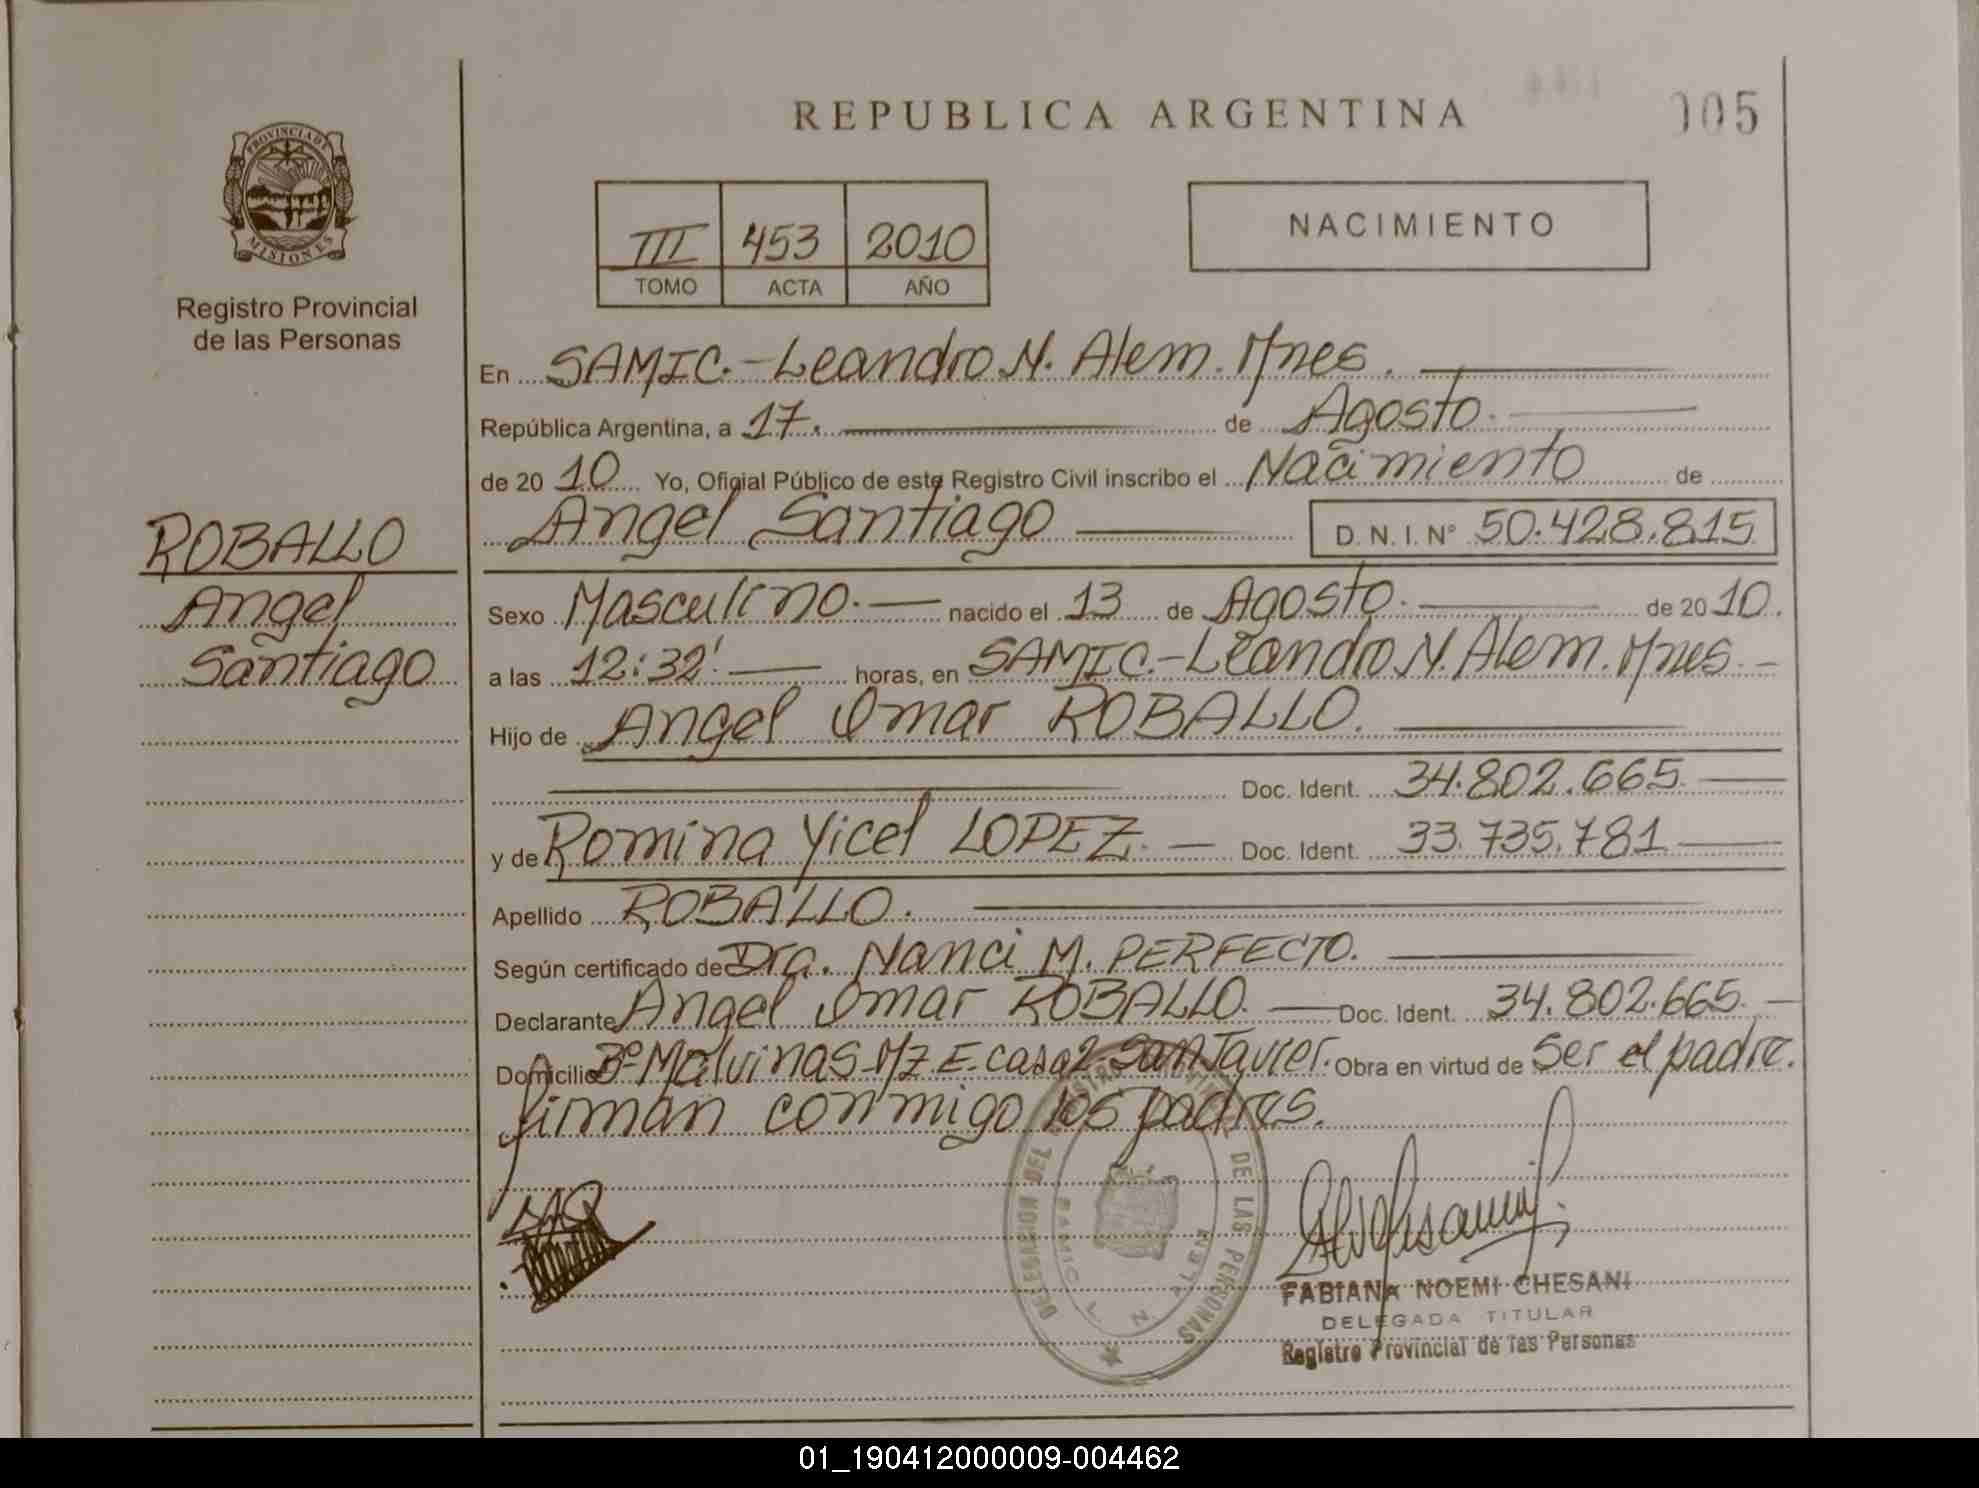 REPUBLICA ARGENTINA
005
PROVINCIA DE
MISIONES
Registro Provincial
de las Personas
III 453 2010
TOMO ACTA AÑO
NACIMIENTO
En SAMIC.-Leandro N. Alem. Mnes.
República Argentina, a 17. de Agosto.
de 20 10 Yo, Oficial Público de este Registro Civil inscribo el Nacimiento de
Angel Santiago D. N. I. Nº 50.428.815
ROBALLO
Angel
Santiago
Sexo Masculino. nacido el 13 de Agosto. de 20 10.
a las 12:32' horas, en SAMIC.-Leandro N. Alem. Mnes.
Hijo de Angel Omar ROBALLO.
Doc. Ident. 34.802.665.
y de Romina Yicel LOPEZ. Doc. Ident. 33.735.781
Apellido ROBALLO.
Según certificado de Dra. Nanci M. PERFECTO.
Declarante Angel Omar ROBALLO. Doc. Ident. 34.802.665.
Domicilio Bº Malvinas-Mz E-casa 2-San Javier. Obra en virtud de Ser el padre.
firman conmigo los padres.
DELEGACION DEL DE LAS PERSONAS
SAMIC L N ALEM
FABIANA NOEMI CHESANI
DELEGADA TITULAR
Registro Provincial de las Personas
01_190412000009-004462